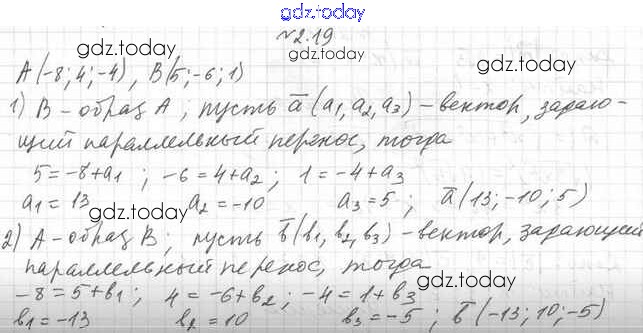 gdz.today
№2.19
gdz.today gdz.today
A(-8; 4; -4), B(5; -6; 1)
1) B - образ A; пусть a̅ (a₁, a₂, a₃) - вектор, задаю-
щий параллельный перенос, тогда
5 = -8 + a₁ ; -6 = 4 + a₂ ; 1 = -4 + a₃
a₁ = 13 a₂ = -10 a₃ = 5 ; a̅ (13; -10; 5)
gdz.today gdz.today
2) A - образ B; пусть b̅ (b₁, b₂, b₃) - вектор, задающий
параллельный перенос, тогда
-8 = 5 + b₁ ; 4 = -6 + b₂ ; -4 = 1 + b₃
b₁ = -13 b₂ = 10 b₃ = -5 ; b̅ (-13; 10; -5)
gdz.today gdz.today